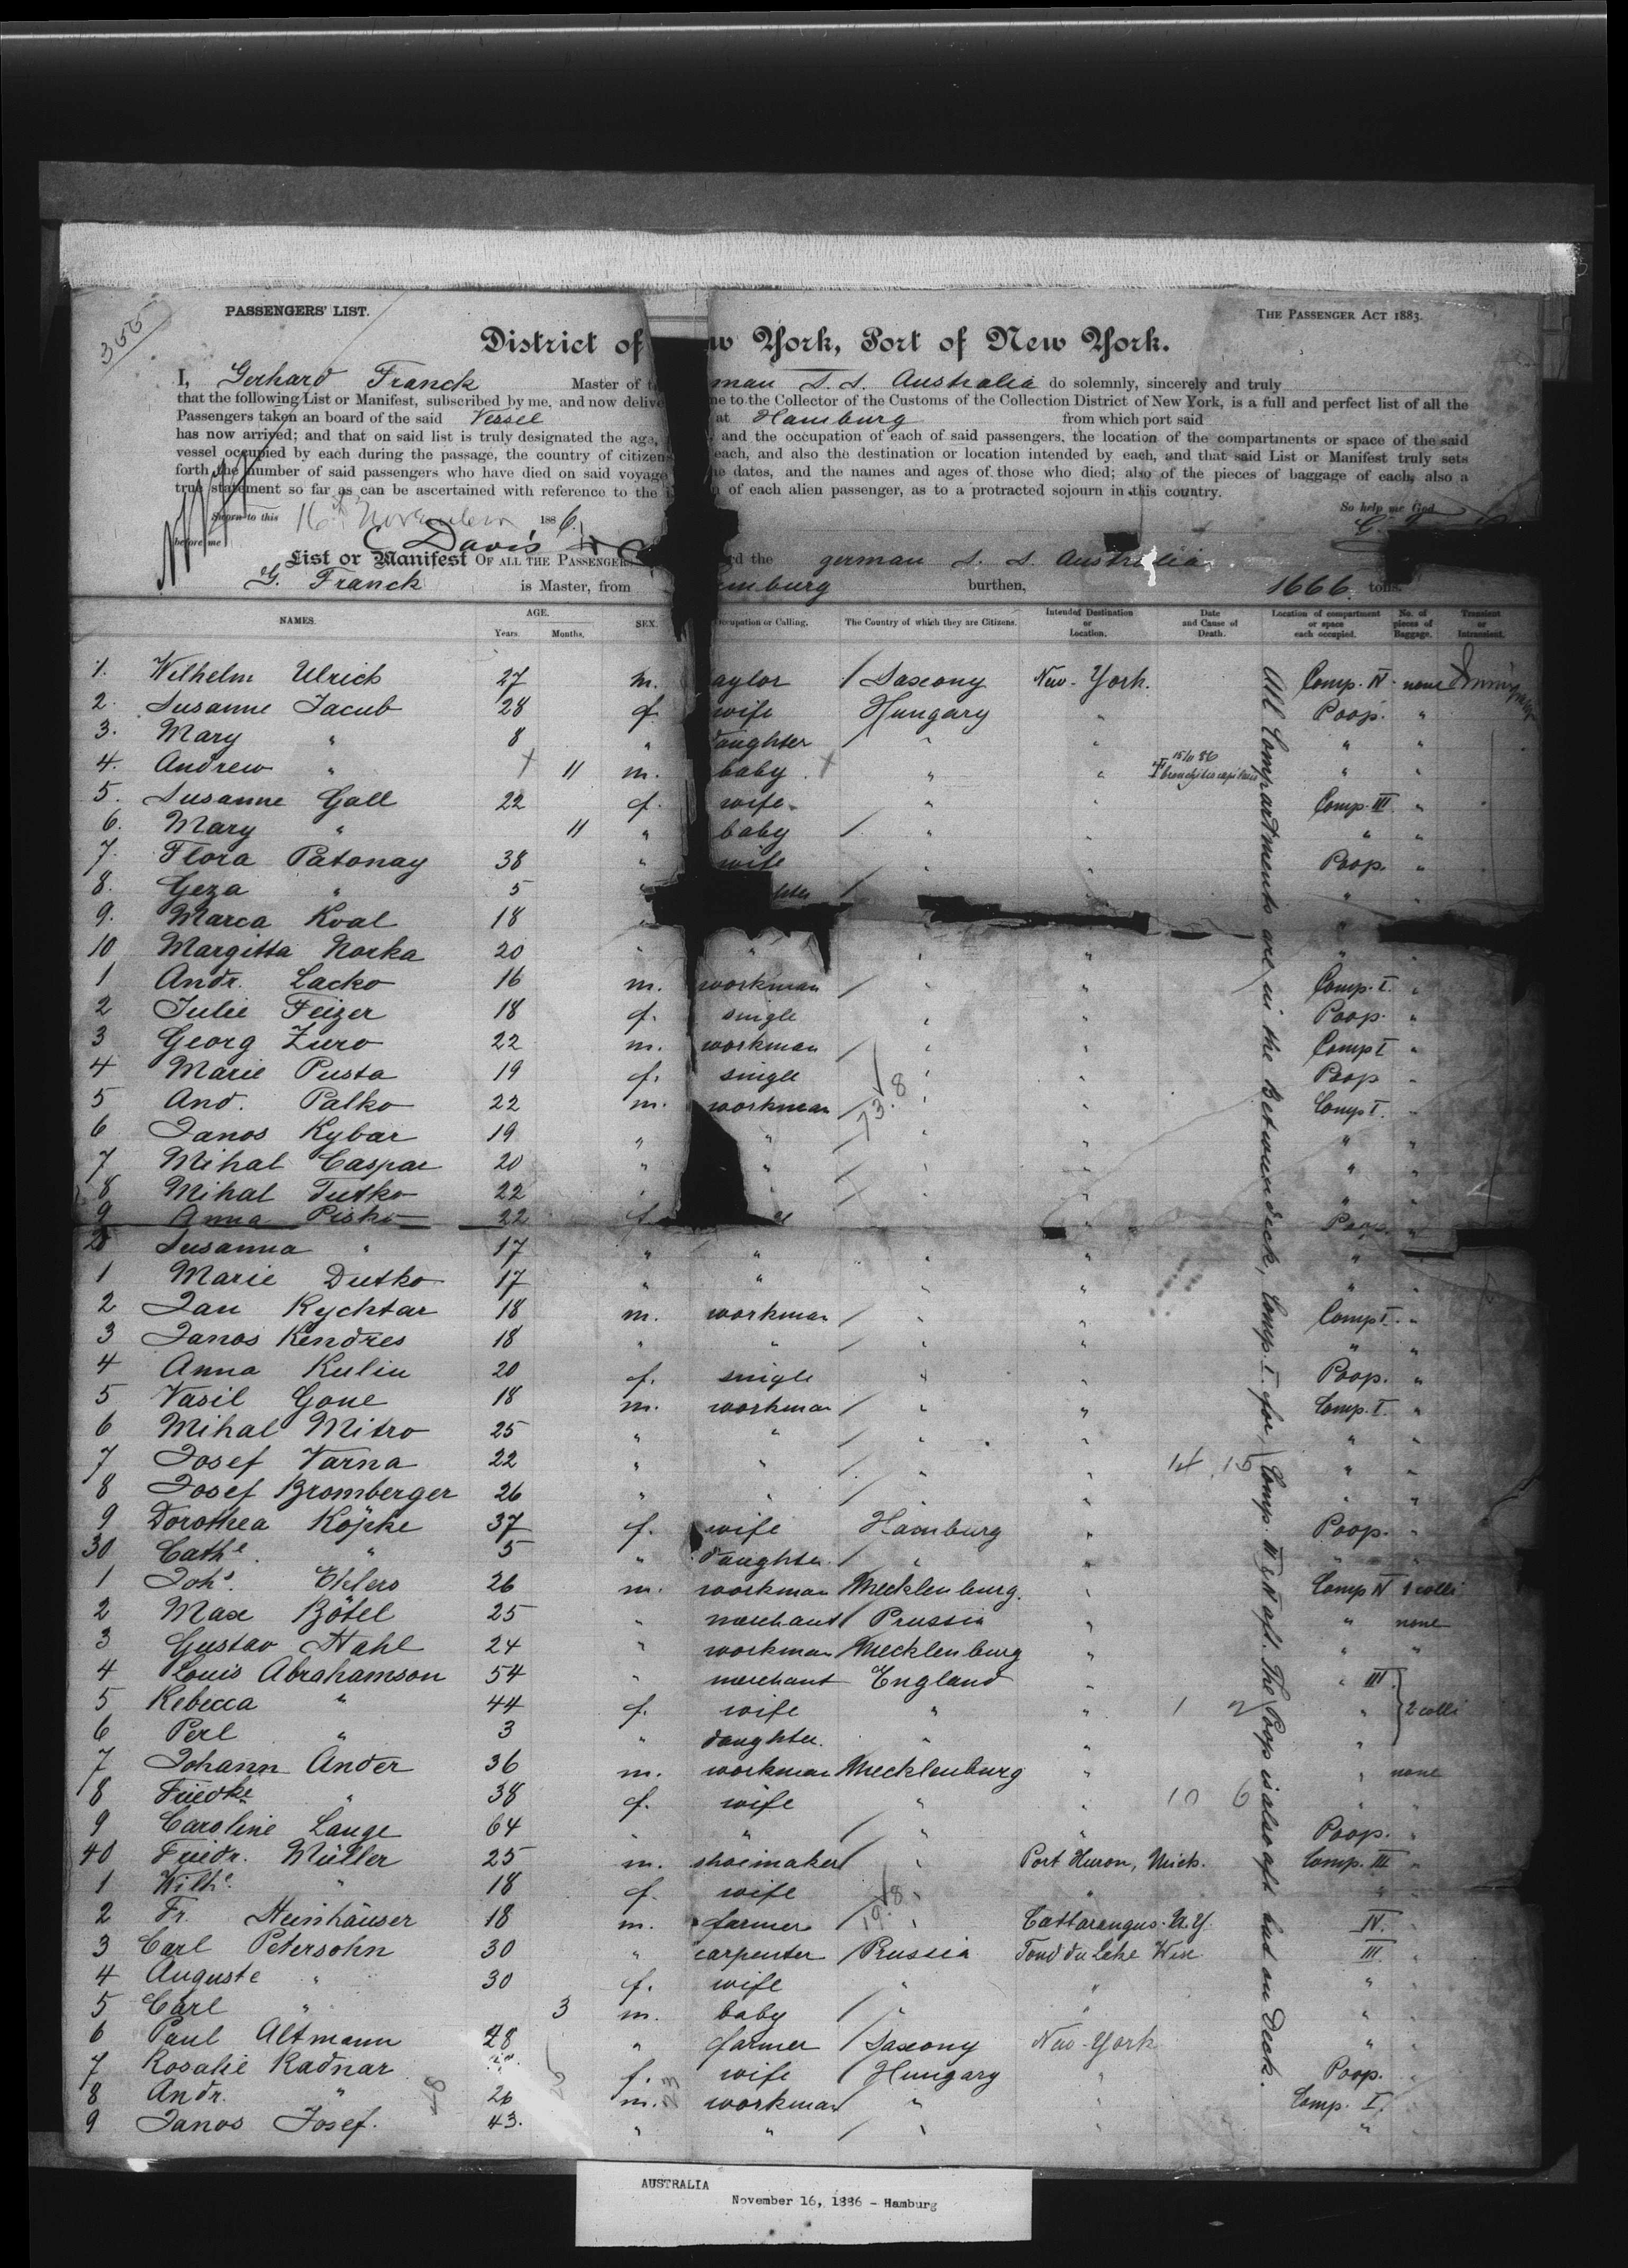 355
PASSENGERS' LIST. THE PASSENGER ACT 1883.
District of w York, Port of New York.
I, Gerhard Franck Master of t man S. S. Australia do solemnly, sincerely and truly
that the following List or Manifest, subscribed by me, and now delive me to the Collector of the Customs of the Collection District of New York, is a full and perfect list of all the
Passengers taken an board of the said Vessel at Hamburg from which port said
has now arrived; and that on said list is truly designated the age, and the occupation of each of said passengers, the location of the compartments or space of the said
vessel occupied by each during the passage, the country of citizens each, and also the destination or location intended by each, and that said List or Manifest truly sets
forth the number of said passengers who have died on said voyage he dates, and the names and ages of those who died; also of the pieces of baggage of each, also a
true statement so far as can be ascertained with reference to the i n of each alien passenger, as to a protracted sojourn in this country.
Sworn to this 16th November 1886. So help me God
before me C Davis
List or Manifest OF ALL THE PASSENGERS rd the german S. S. Australia
G. Franck is Master, from mburg burthen, 1666 tons.
NAMES. AGE. Years. Months. SEX. Occupation or Calling. The Country of which they are Citizens. Intended Destination or Location. Date and Cause of Death. Location of compartment or space each occupied. No. of pieces of Baggage. Transient or Intransient.
1. Wilhelm Ulrich 27 m. aylor / Saxony New-York. Comp. IV none
2. Susanne Jacub 28 f. wife Hungary " Poop. "
3. Mary " 8 " daughter / " " " "
4. Andrew " 11 m. baby " " 15/11 86 " "
5. Susanne Gall 22 f. wife " " Comp. III "
6. Mary " 11 " baby / " " " "
7. Flora Patonay 38 " wife " " Poop. "
8. Geza " 5 " hter / "
9. Marca Koal 18 "
10 Margitta Norka 20 " " " "
1 Andr. Lacko 16 m. workman / " " Comp. I. "
2 Julie Feizer 18 f. single " " Poop. "
3 Georg Zuro 22 m. workman / " " Comp I "
4 Marie Pusta 19 f. single " " Poop "
5 And. Palko 22 m. workman / " " Comp I. "
6 Janos Kybar 19 " " / " " " "
7 Mihal Caspar 20 " " / " " " "
8 Mihal Tutko 22 " " / " " " "
9 Anna Pisko 22 f. " " Poop. "
20 Susanna " 17 " " " " "
1 Marie Dutko 17 " " " " " "
2 Jan Rychtar 18 m. workman / " " Comp I. "
3 Janos Kendres 18 " " / " " " "
4 Anna Kulin 20 f. single " " Poop. "
5 Vasil Gone 18 m. workman / " " Comp. I. "
6 Mihal Mitro 25 " " / " " " "
7 Josef Varna 22 " " / " " 14 15 " "
8 Josef Bromberger 26 " " / " " " "
9 Dorothea Köpke 37 f. wife Hamburg " Poop. "
30 Cathe. " 5 " daughter / " " " "
1 Johs. Ehlers 26 m. workman Mecklenburg. " Comp IV 1 colli
2 Max Bötel 25 " merchant / Prussia " " none
3 Gustav Stahl 24 " workman Mecklenburg " " "
4 Louis Abrahamson 54 " merchant England " " III.
5 Rebecca " 44 f. wife " " 1 2 " 2 colli
6 Perl " 3 " daughter. " " "
7 Johann Ander 36 m. workman Mecklenburg " " none
8 Friedke " 38 f. wife " " 10 6 " "
9 Caroline Lange 64 " " / " " Poop. "
40 Friedr. Müller 25 m. shoemaker / " Port Huron, Mich. Comp. III "
1 Wilhe. " 18 f. wife " " " "
2 Fr. Steinhäuser 18 m. farmer / " Cattaraugus. N.Y. IV. "
3 Carl Petersohn 30 " carpenter / Prussia Fond du Lake Wisc III. "
4 Auguste " 30 f. wife " " " "
5 Carl " 3 m. baby / " " " "
6 Paul Altmann 28 " farmer / Saxony New-York " "
7 Rosalie Radnar f. wife / Hungary " Poop. "
8 Andr. " 26 m. workman " " Comp. I. "
9 Janos Josef. 43. " " / " " "
All Compartments are in the Betweendeck, Comp. I. for, Comp. III & IV aft. The Poop is also aft but on Deck.
AUSTRALIA
November 16, 1886 - Hamburg